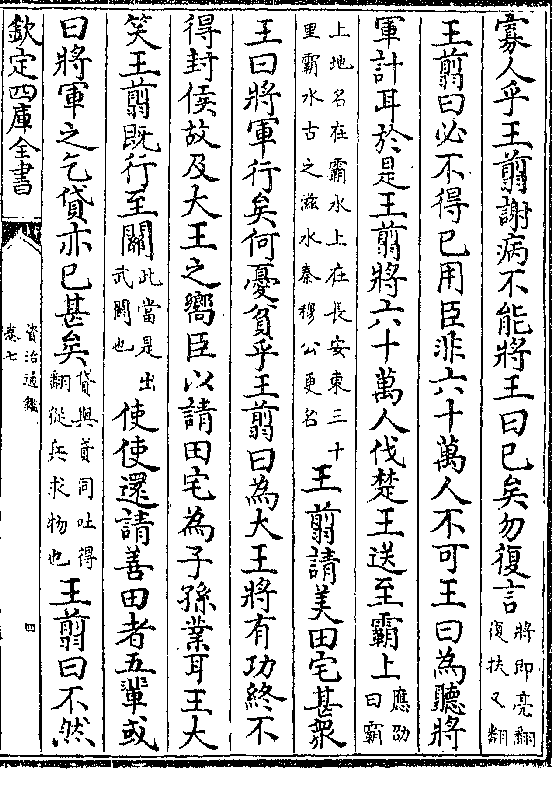 寡人乎王翦謝病不能將王曰已矣勿復言將即亮翻復扶又翻
王翦曰必不得已用臣非六十萬人不可王曰為聽將
軍計耳於是王翦將六十萬人伐楚王送至霸上應劭曰霸
上地名在霸水上在長安東三十里霸水古之滋水秦穆公更名王翦請美田宅甚衆
王曰將軍行矣何憂貧乎王翦曰為大王將有功終不
得封侯故及大王之嚮臣以請田宅為子孫業耳王大
笑王翦既行至關此當是出武關也使使還請善田者五輩或
曰將軍之乞貸亦已甚矣貸與貣同吐得翻從兵求物也王翦曰不然
欽定四庫全書
資治通鑑
卷七
四